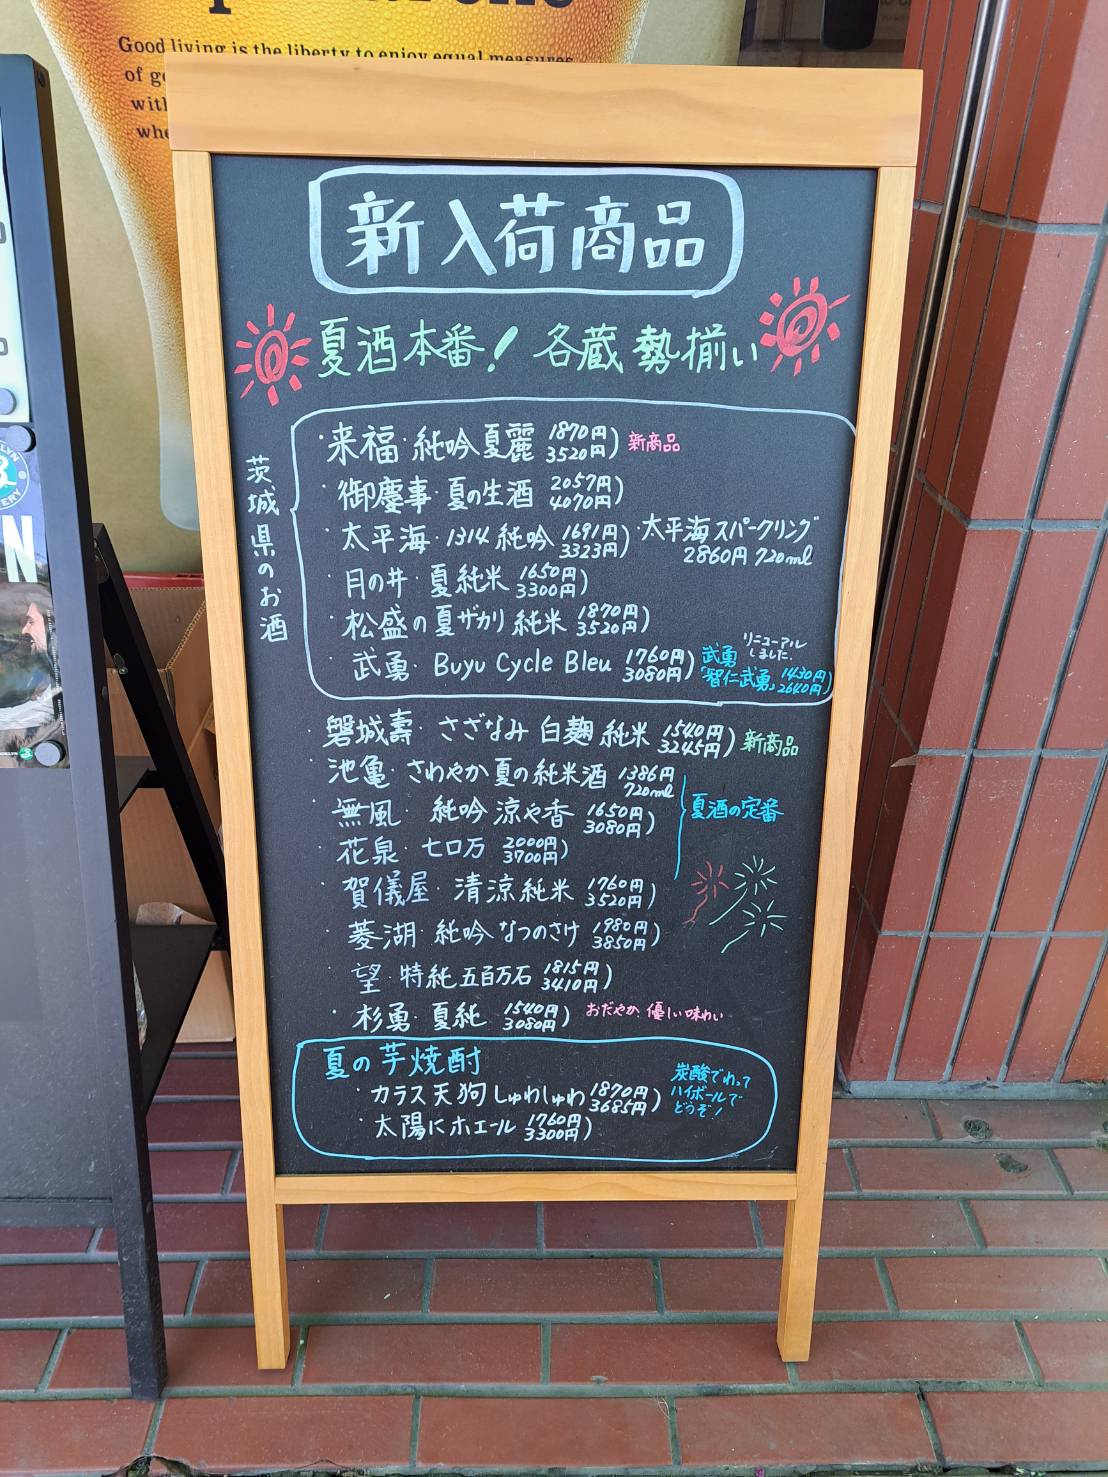 Good living is the liberty to enjoy equal measures
of
新入荷商品
夏酒本番! 各蔵勢揃い
茨城県のお酒
・来福・純吟夏麗 1870円 3520円) 新商品
・御慶事・夏の生酒 2057円 4070円)
・太平海・1314純吟 1691円 3323円) ・太平海スパークリング
2860円 720ml
・月の井・夏純米 1650円 3300円)
・松盛の夏ザカリ純米 1870円 3520円)
・武勇・Buyu Cycle Bleu 1760円 3080円) 武勇 リニューアルしました。
「智仁武勇」 1430円 2640円)
・磐城壽・さざなみ 白麹 純米 1540円 3245円) 新商品
・池亀・さわやか夏の純米酒 1386円 720ml
夏酒の定番
・無風 純吟 涼や香 1650円 3080円)
・花泉・七ロ万 2000円 3700円)
・賀儀屋・清涼純米 1760円 3520円)
・菱湖・純吟なつのさけ 1980円 3850円)
・望・特純五百万石 1815円 3410円)
・杉勇・夏純 1540円 3080円) おだやか、優しい味わい
夏の芋焼酎
・カラス天狗しゅわしゅわ 1870円 3685円)
炭酸でわって
ハイボールで
どうぞ!
・太陽にホエール 1760円 3300円)